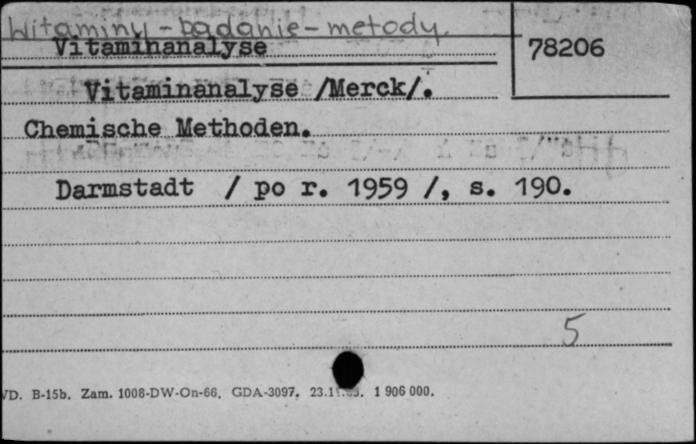 Witaminy - badanie - metody
Vitaminanalyse
78206
Vitaminanalyse /Merck/.
Chemische Methoden.
Darmstadt / po r. 1959 /, s. 190.
5
VD. B-15b. Zam. 1008-DW-On-66. GDA-3097. 1 906 000.